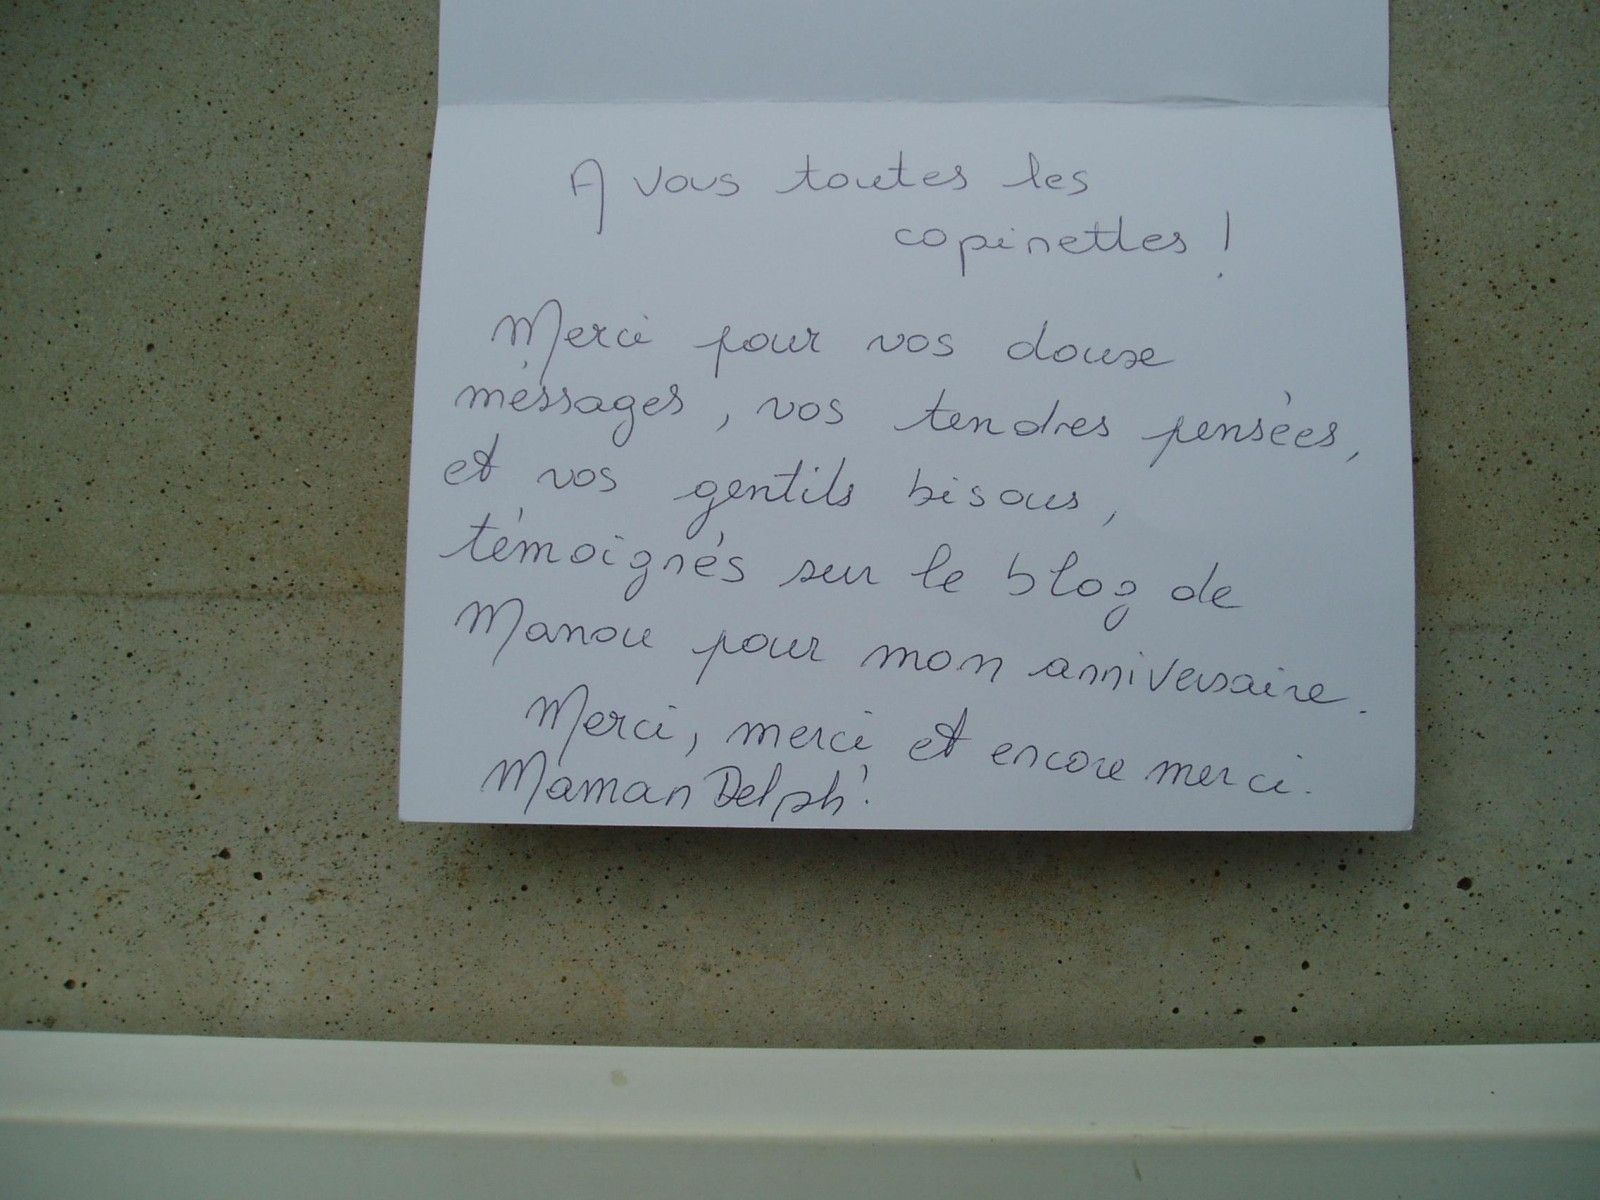 A vous toutes les
copinettes !
Merci pour vos doux
méssages, vos tendres pensées,
et vos gentils bisous,
témoignés sur le blog de
Manou pour mon anniversaire.
Merci, merci et encore merci.
Maman Delph !